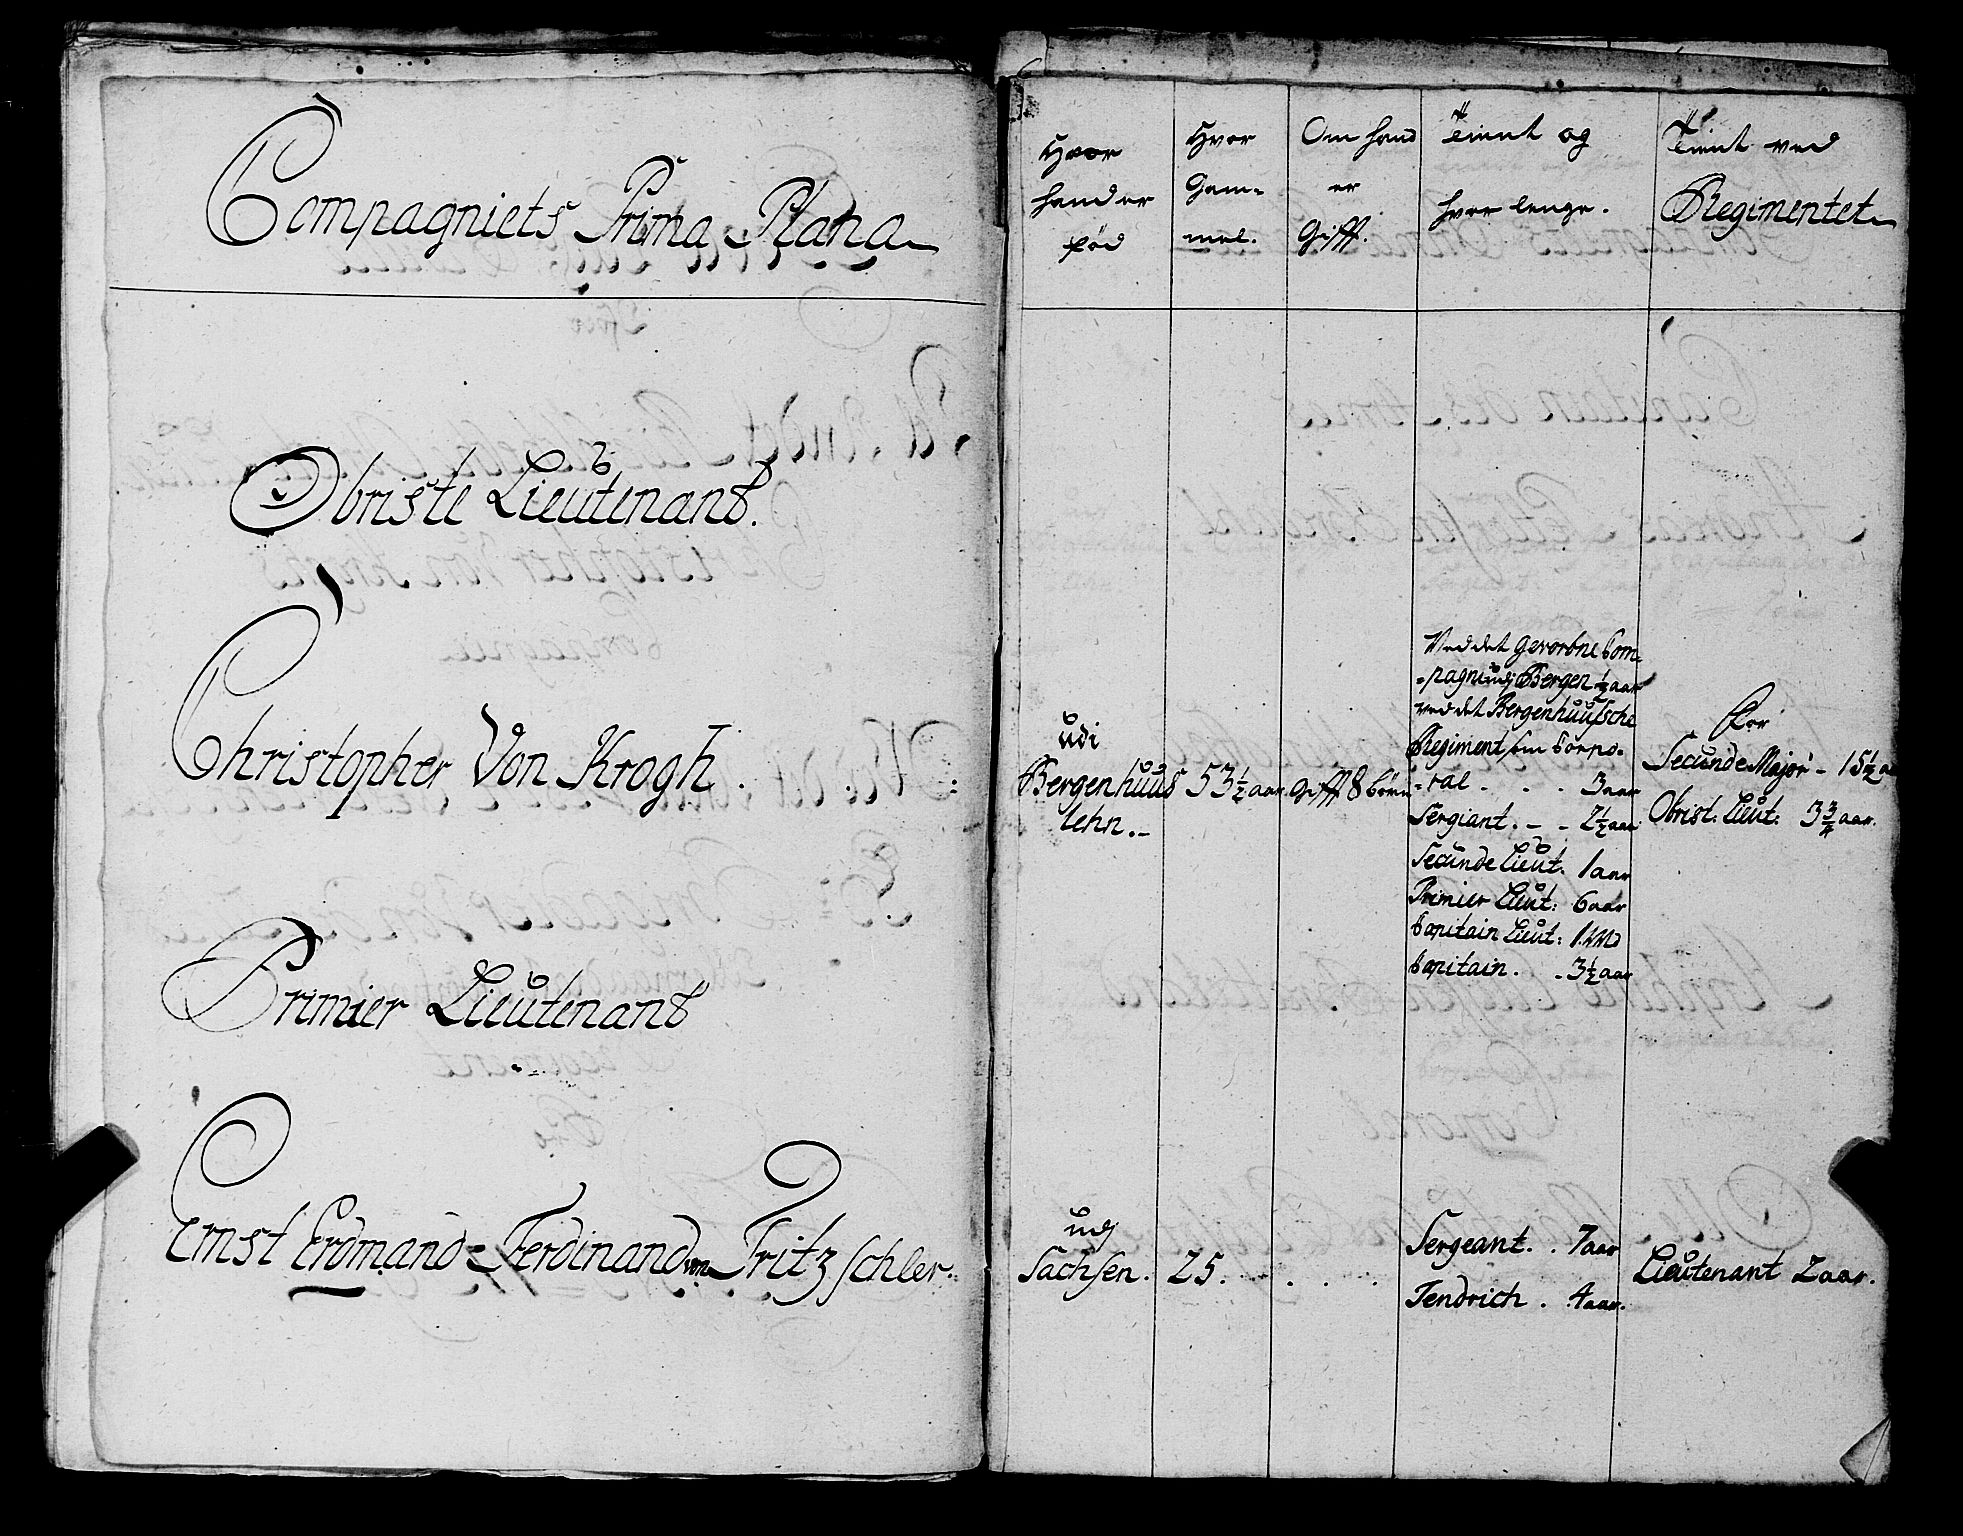 Compagniets Prima Plana
Obriste Lieutenant.
Christopher Von Krogh.
Primier Lieutenant
Ernst Erdmand Ferdinand von Fritzschler.
Hvor
hand er
fød
Hvor
Gam-
mel.
Om hand
er
Gifft.
Tient og
hvor lenge.
Tient ved
Regimentet
udi
Bergenhuus
lehn.
53 1/2 aar.
Gifft 8 børn
Ved det Gevorbne Com-
-pagnie udj Bergen 1/2 aar
ved det Bergenhuusche
Regiment som Corpo-
-ral . . . 3 aar
Sergiant. - - 2 1/2 aar
Secunde Lieut. 1 aar
Primier Lieut: 6 aar
Capitain Lieut: 1. Md
Capitain. - 3 1/2 aar
For
Secunde Major - 15 1/2 a
Obrist: Lieut: 3 3/4 aar.
udj
Sachsen.
25. . . .
Sergeant. . 7 aar
Fendrich . 4 aar.
Lieutenant 2 aar.